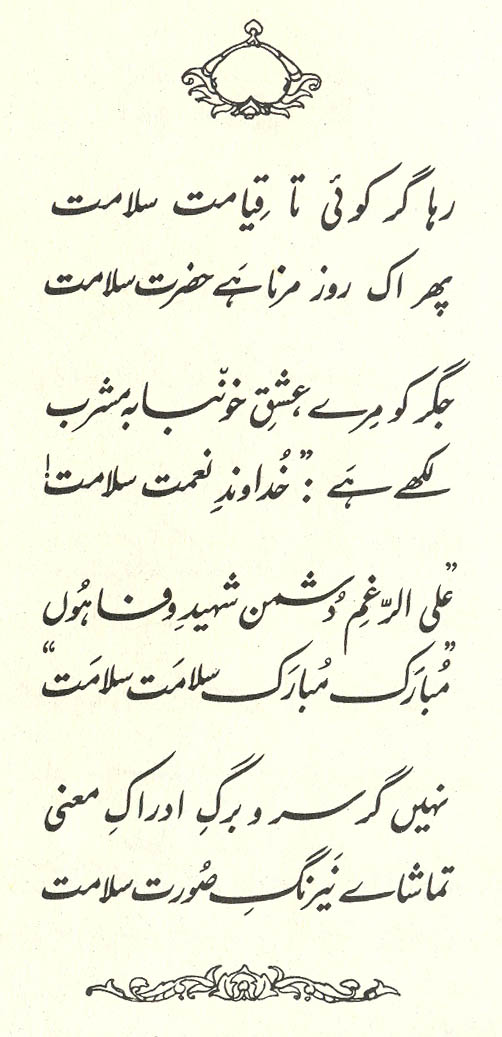 رہا گر کوئی تا قِیامت سلامت
پھر اک روز مرنا ہَے حضرت سلامت
جگر کو مِرے عشقِ خوں نّابہ مشرب
لکھے ہَے : ”خُداوندِ نعمت سلامت!
”علی الرّغمِ دُشمن شہیدِ وفا ہُوں
”مُبارَک مُبارَک سلامَت سلامَت“
نہیں گر سر و برگِ ادراکِ معنی
تماشاے نَیرنگِ صُورت سلامت